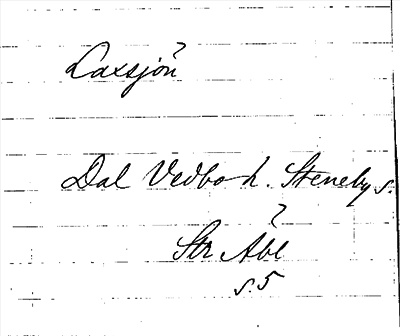 ?
Laxsjön
Dal Vedbo h. Steneby s.
?
Str Åbl
s. 5